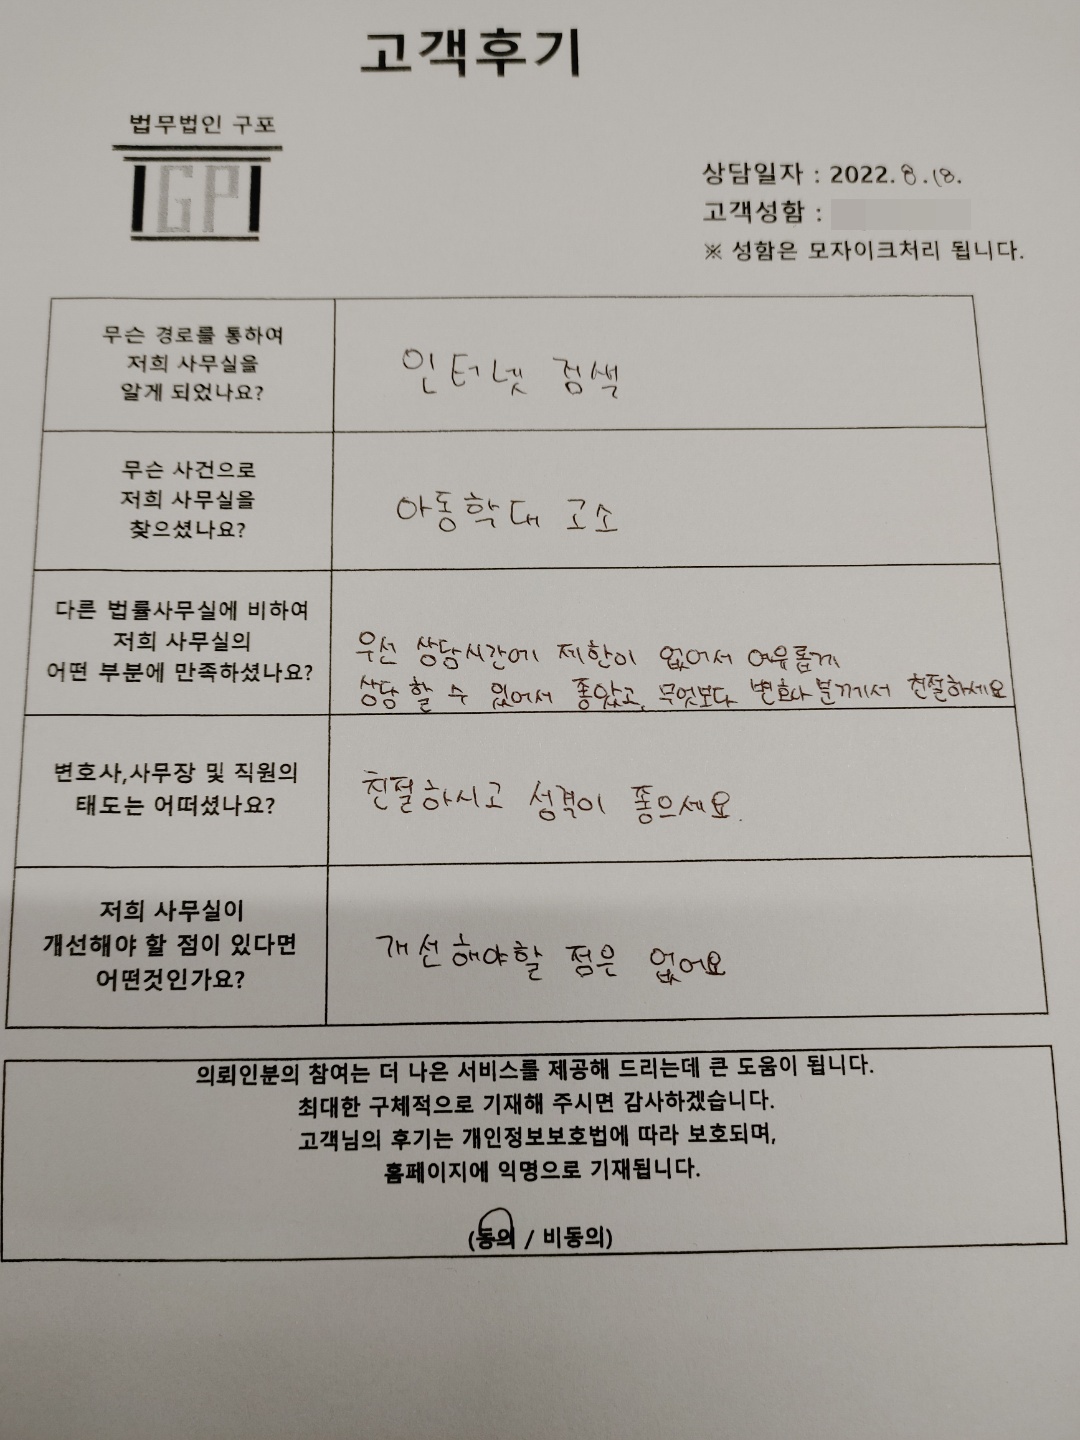 고객후기
법무법인 구포
GP
상담일자 : 2022. 8. 18.
고객성함 :
※ 성함은 모자이크처리 됩니다.
무슨 경로를 통하여
저희 사무실을
알게 되었나요?
인터넷 검색
무슨 사건으로
저희 사무실을
찾으셨나요?
아동학대 고소
다른 법률사무실에 비하여
저희 사무실의
어떤 부분에 만족하셨나요?
우선 상담시간에 제한이 없어서 여유롭게
상담 할 수 있어서 좋았고, 무엇보다 변호사분께서 친절하세요
변호사,사무장 및 직원의
태도는 어떠셨나요?
친절하시고 성격이 좋으세요.
저희 사무실이
개선해야 할 점이 있다면
어떤것인가요?
개선해야할 점은 없어요
의뢰인분의 참여는 더 나은 서비스를 제공해 드리는데 큰 도움이 됩니다.
최대한 구체적으로 기재해 주시면 감사하겠습니다.
고객님의 후기는 개인정보보호법에 따라 보호되며,
홈페이지에 익명으로 기재됩니다.
(동의 / 비동의)